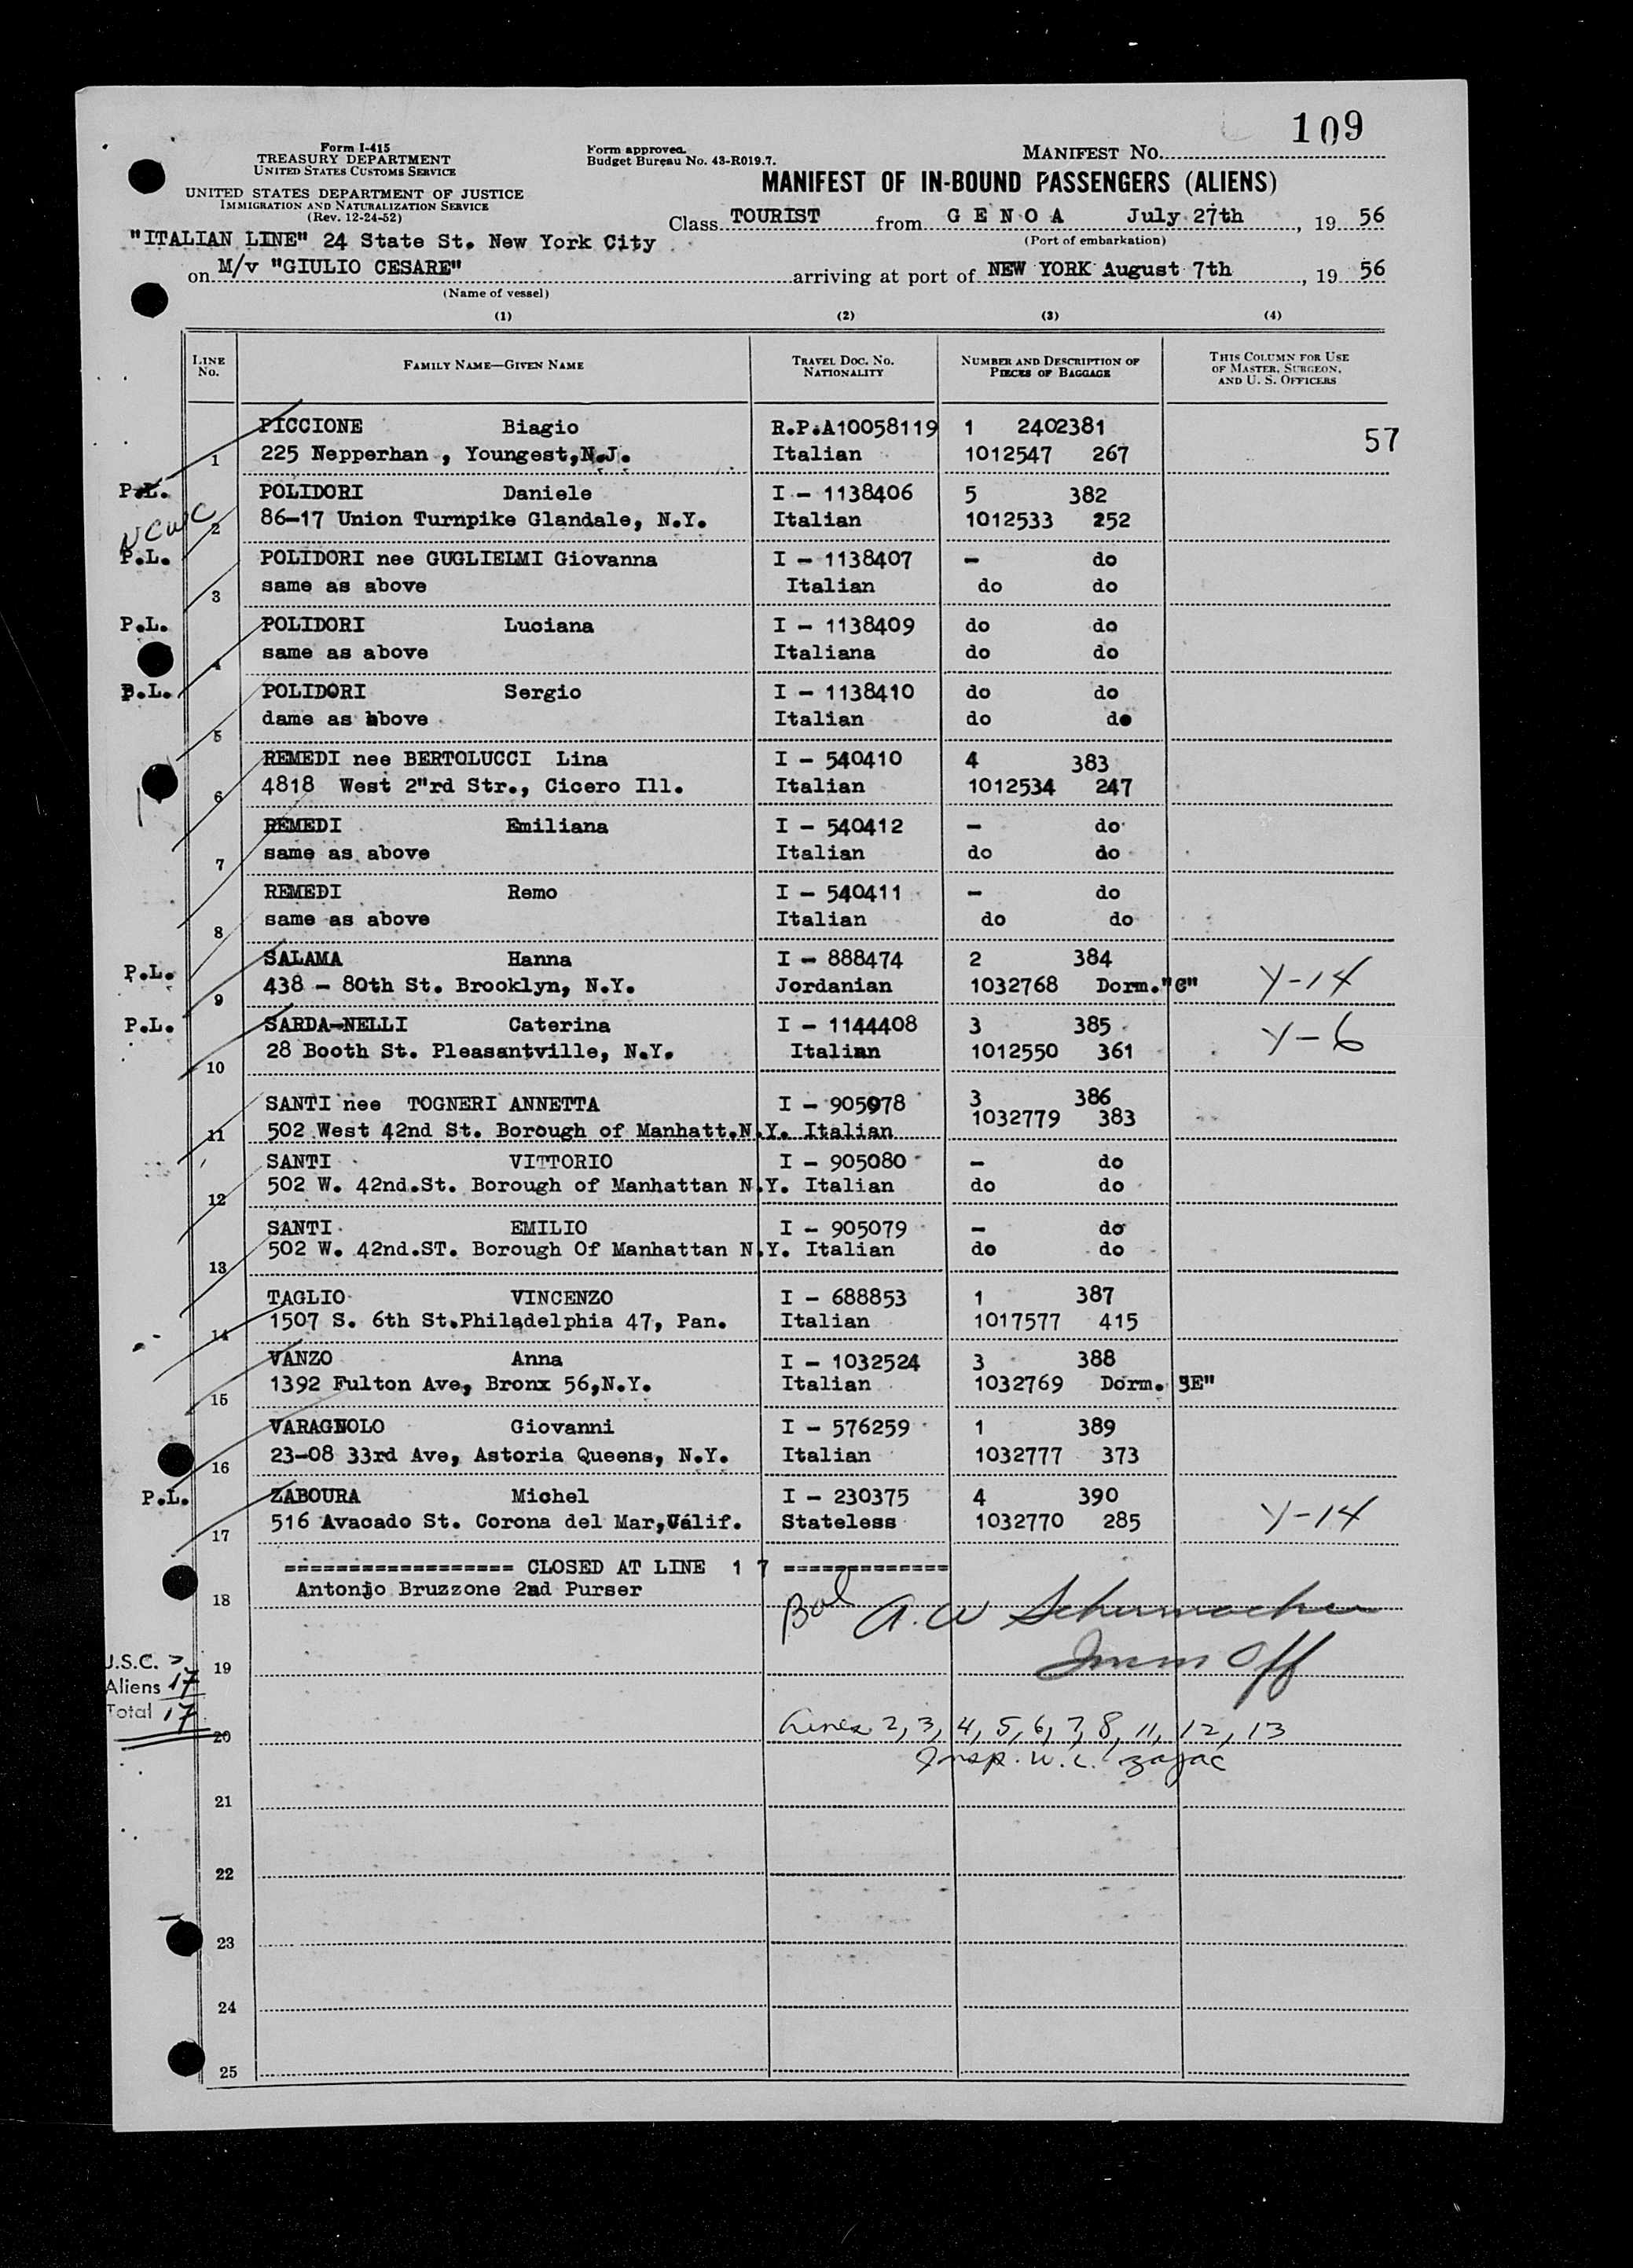 109
Form I-415
TREASURY DEPARTMENT
UNITED STATES CUSTOMS SERVICE
UNITED STATES DEPARTMENT OF JUSTICE
IMMIGRATION AND NATURALIZATION SERVICE
(Rev. 12-24-52)
Form approved.
Budget Bureau No. 43-R019.7.
MANIFEST NO.
MANIFEST OF IN-BOUND PASSENGERS (ALIENS)
Class TOURIST from G E N O A July 27th, 19 56
(Port of embarkation)
"ITALIAN LINE" 24 State St. New York City
on M/v "GIULIO CESARE" arriving at port of NEW YORK August 7th, 19 56
(Name of vessel)
(1) (2) (3) (4)
LINE NO. FAMILY NAME—GIVEN NAME TRAVEL DOC. NO. NATIONALITY NUMBER AND DESCRIPTION OF PIECES OF BAGGAGE THIS COLUMN FOR USE OF MASTER, SURGEON, AND U. S. OFFICERS
PICCIONE Biagio R.P.A10058119 1 2402381 57
1 225 Nepperhan , Youngest,N.J. Italian 1012547 267
P.L. POLIDORI Daniele I - 1138406 5 382
NCWC 2 86-17 Union Turnpike Glandale, N.Y. Italian 1012533 252
P.L. POLIDORI nee GUGLIELMI Giovanna I - 1138407 - do
3 same as above Italian do do
P.L. POLIDORI Luciana I - 1138409 do do
4 same as above Italiana do do
P.L. POLIDORI Sergio I - 1138410 do do
5 dame as above Italian do do
REMEDI nee BERTOLUCCI Lina I - 540410 4 383
6 4818 West 2"rd Str., Cicero Ill. Italian 1012534 247
REMEDI Emiliana I - 540412 - do
7 same as above Italian do do
REMEDI Remo I - 540411 - do
8 same as above Italian do do
P.L. SALAMA Hanna I - 888474 2 384
9 438 - 80th St. Brooklyn, N.Y. Jordanian 1032768 Dorm."G" Y-14
P.L. SARDA-NELLI Caterina I - 1144408 3 385 Y-6
10 28 Booth St. Pleasantville, N.Y. Italian 1012550 361
SANTI nee TOGNERI ANNETTA I - 905078 3 386
11 502 West 42nd St. Borough of Manhatt.N.Y. Italian 1032779 383
SANTI VITTORIO I - 905080 - do
12 502 W. 42nd.St. Borough of Manhattan N.Y. Italian do do
SANTI EMILIO I - 905079 - do
13 502 W. 42nd.ST. Borough Of Manhattan N.Y. Italian do do
TAGLIO VINCENZO I - 688853 1 387
14 1507 S. 6th St.Philadelphia 47, Pan. Italian 1017577 415
VANZO Anna I - 1032524 3 388
15 1392 Fulton Ave, Bronx 56,N.Y. Italian 1032769 Dorm. "E"
VARAGNOLO Giovanni I - 576259 1 389
16 23-08 33rd Ave, Astoria Queens, N.Y. Italian 1032777 373
P.L. ZABOURA Michel I - 230375 4 390
17 516 Avacado St. Corona del Mar,Calif. Stateless 1032770 285 Y-14
================== CLOSED AT LINE 1 7 =============
18 Antonio Bruzzone 2nd Purser
Bal A. W Schumacher
19 Imm Off
U.S.C.
Aliens 17
Total 17
20 Lines 2, 3, 4, 5, 6, 7, 8, 11, 12, 13
Insp. W. C. Zajac
21
22
23
24
25